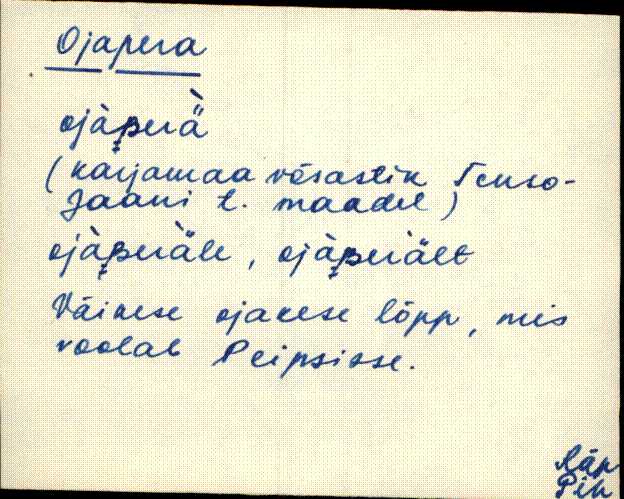 Ojapera
ojàperä̀
(karjamaa võsastik Tenso-
Jaani t. maadel)
ojàperäle, ojàperält
Väikese ojakese lõpp, mis
voolab Peipsisse.
Räp
Pih